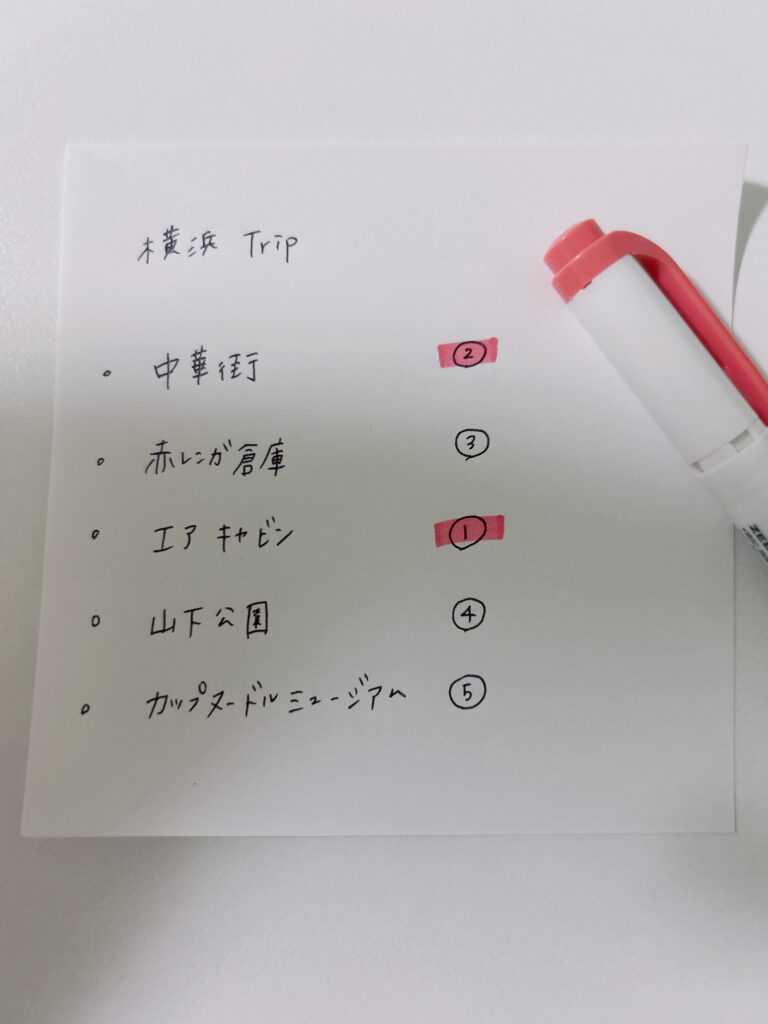 横浜 Trip
。 中華街 ②
。 赤レンガ倉庫 ③
。 エアキャビン ①
。 山下公園 ④
。 カップヌードルミュージアム ⑤